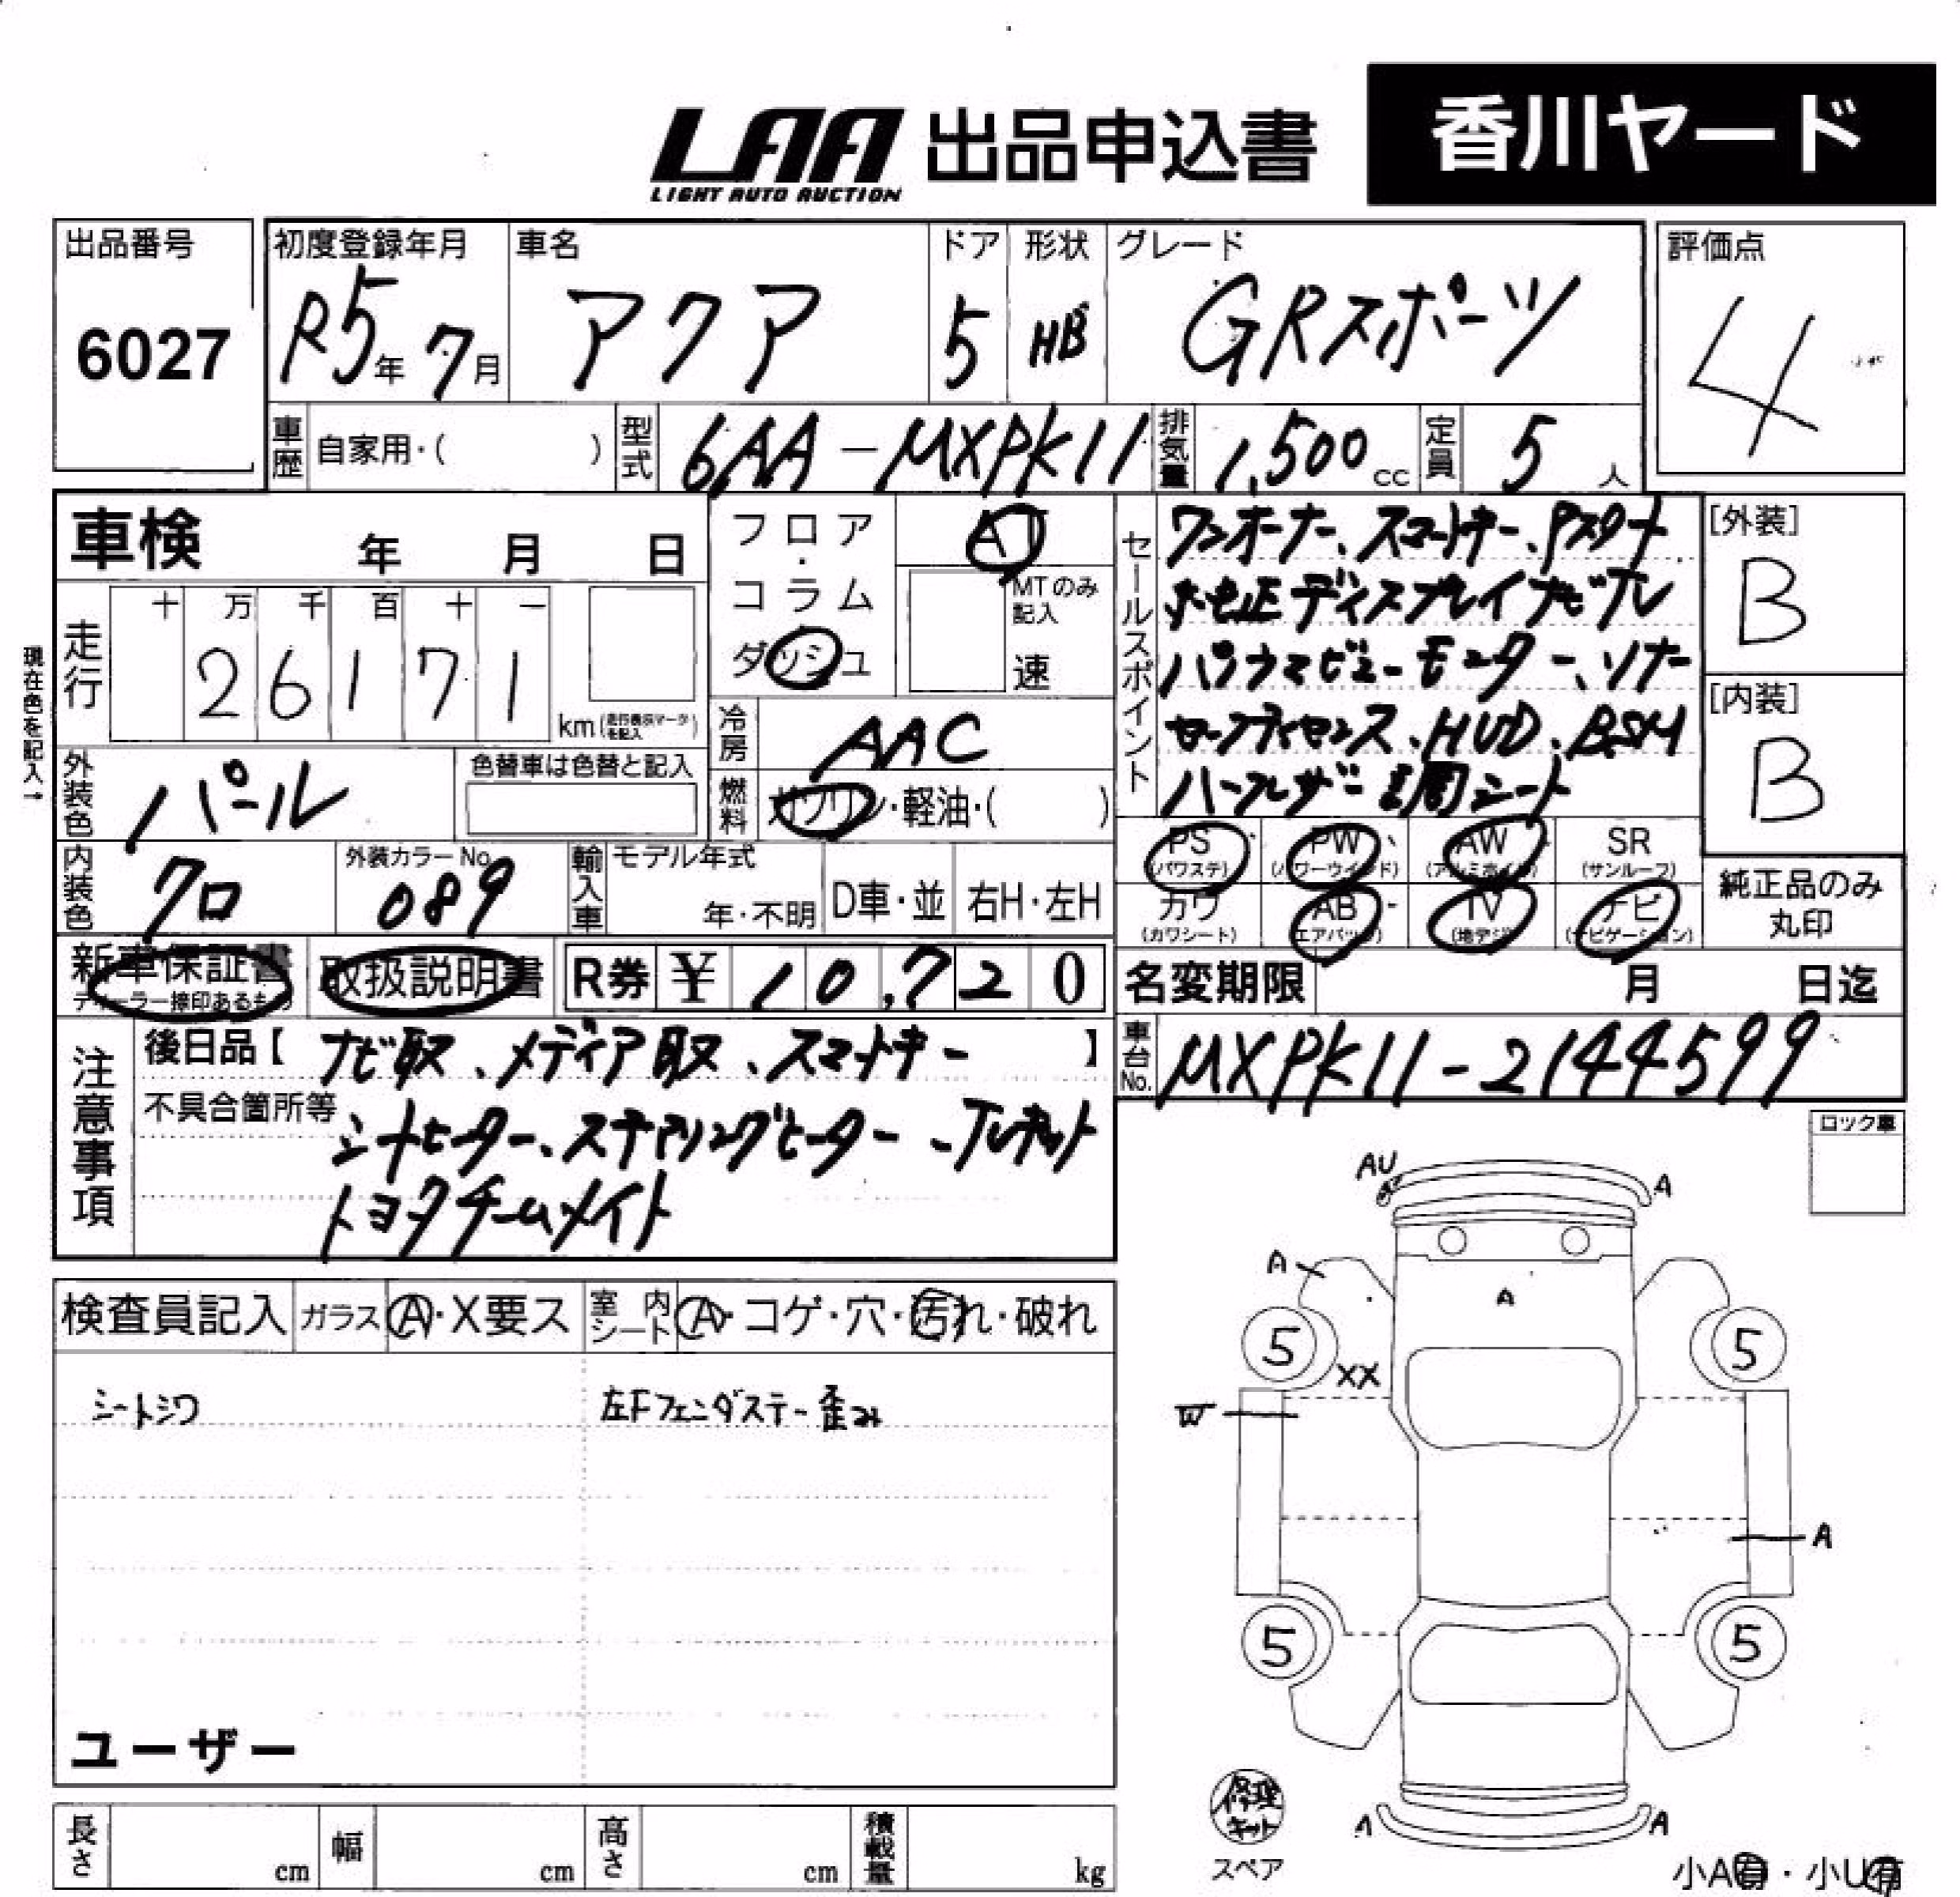 LAA 出品申込書 香川ヤード
LIGHT AUTO AUCTION
出品番号 初度登録年月 車名 ドア 形状 グレード 評価点
6027 R5年 7月 アクア 5 HB GRスポーツ 4
車歴 自家用・( ) 型式 6AA-MXPK11 排気量 1,500cc 定員 5人
車検 年 月 日
フロア・コラム ダッシュ
AT
MTのみ記入
速
現在色を記入→
走行 十 万 千 百 十 一
26171
km(走行表示マークを記入)
冷房 AAC
燃料 ガソリン・軽油・( )
外装色 パール 色替車は色替と記入
内装色 クロ 外装カラーNo. 089 輸入車 モデル年式 年・不明 D車・並 右H・左H
セールスポイント
ワンオーナー、スマートキー、Pスタート
純正ディスプレイナビTV
パノラマビューモニター、ソナー
セーフティセンス、HUD、BSM
ハーフレザー調シート
[外装]
B
[内装]
B
PS(パワステ) PW(パワーウインド) AW(アルミホイル) SR(サンルーフ)
カワ(カワシート) AB(エアバッグ) TV(地デジ) ナビ(ナビゲーション)
純正品のみ
丸印
新車保証書 ディーラー捺印あるもの 取扱説明書 R券 ¥ 10,720
名変期限 月 日迄
車台No. MXPK11-2144599
注意事項
後日品【ナビ取、メディア取、スマートキー】
不具合箇所等
シートヒーター、ステアリングヒーター
トヨタチームメイト
ロック車
検査員記入 ガラス A・X要ス 室内シート A・コゲ・穴・汚れ・破れ
シートシワ 左Fフェンダステー歪み
ユーザー
AU A
A A
5 5
XX
W
A
5 5
A A
修理キット
スペア
小A有・小U有
長さ cm 幅 cm 高さ cm 積載量 kg